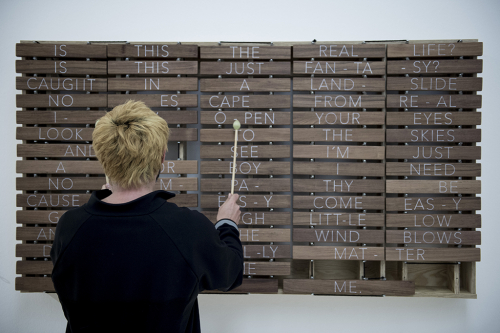 IS THIS THE REAL LIFE?
IS THIS JUST FAN-TA SY?
CAUGHT IN A LAND- SLIDE
NO ES CAPE FROM RE-AL
I- O PEN YOUR EYES
LOOK TO THE SKIES
AN EE I'M JUST
A R OY I NEED
NO M A- THY BE
CAUSE EAS-Y COME EAS-Y
G IGH LIT-LE LOW
AN WIND BLOWS
-LY MAT- TER
E
ME.